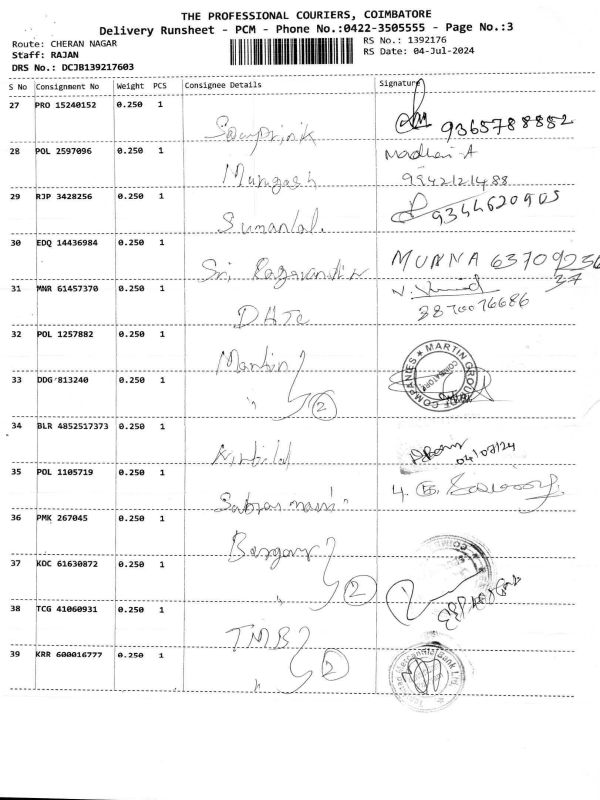 THE PROFESSIONAL COURIERS, COIMBATORE
Delivery Runsheet - PCM - Phone No.:0422-3505555 - Page No.:3
Route: CHERAN NAGAR
RS No.: 1392176
Staff: RAJAN
RS Date: 04-Jul-2024
DRS No.: DCJB139217603
S No Consignment No Weight PCS Consignee Details Signature
27 PRO 15240152 0.250 1
9365788852
28 POL 2597096 0.250 1
Murugash
9942121488
29 RJP 3428256 0.250 1
Sumanlal.
9344620905
30 EDQ 14436984 0.250 1
Sri
MUNNA 63709236
37
31 MNR 61457370 0.250 1
3870076686
32 POL 1257882 0.250 1
Martin
MARTIN GROUP OF COMPANIES
COIMBATORE
33 DDG 813240 0.250 1
" 2
34 BLR 4852517373 0.250 1
04/07/24
35 POL 1105719 0.250 1
36 PMK 267045 0.250 1
37 KDC 61630872 0.250 1
" 2
38 TCG 41060931 0.250 1
TMB
39 KRR 600016777 0.250 1
" 2
Mercantile Bank Ltd.